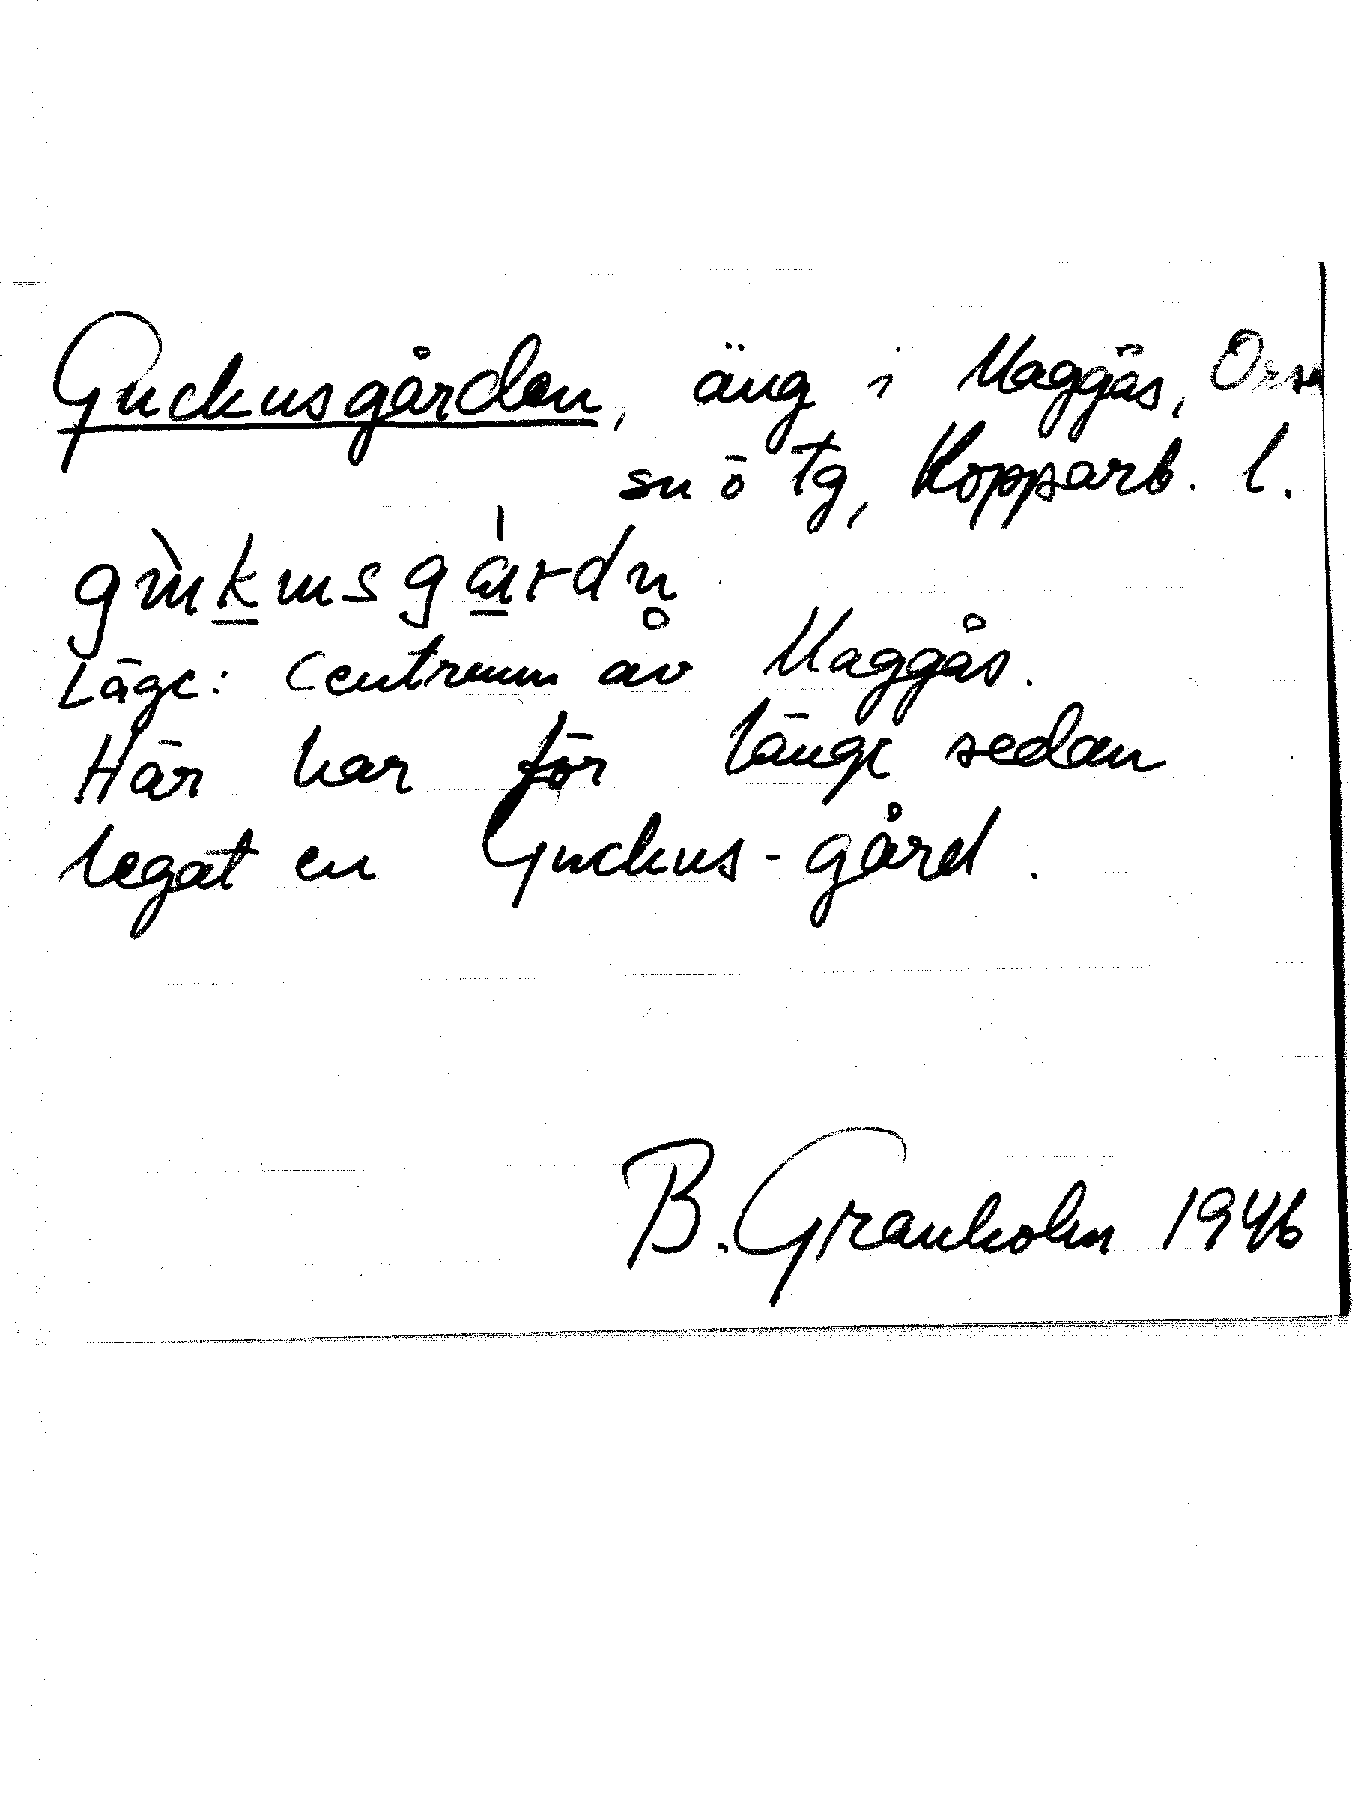 Guckusgården, äng i Maggås, Orsa
sn o tg, Kopparb. l.
Läge: Centrum av Maggås.
Här har för länge sedan
legat en Guckus-gård.
B. Granholm 1946